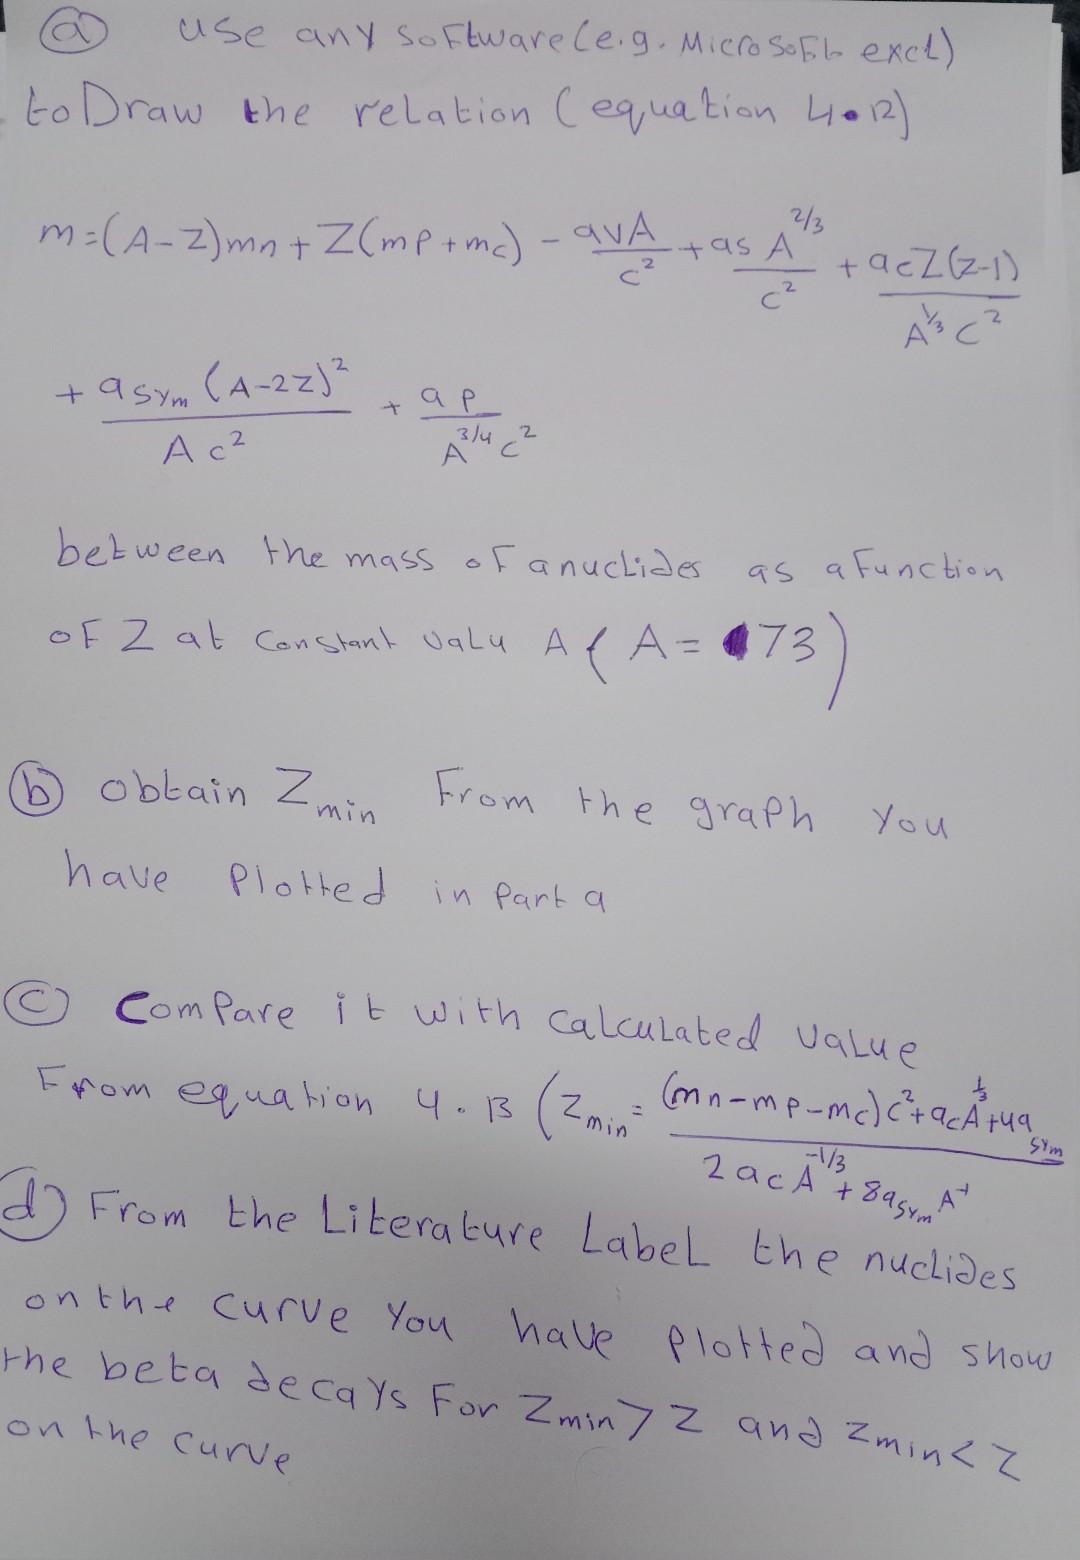 (a) use any software (e.g. MicroSoft excl)
to Draw the relation (equation 4.12)
m=(A-Z)mn + Z(mp+mc) - avA/c² + as A^2/3/c² + acZ(z-1)/A^⅓ C²
+ asym (A-2Z)²/A c² + ap/A^3/4 c²
between the mass of anuclides as a function
of Z at Constant valu A ( A = 73)
(b) obtain Zmin From the graph You
have Plotted in Part a
(c) Compare it with calculated value
From equation 4.13 (Zmin = (mn-mp-mc)c²+acA^-⅓+4asym/2acA^-1/3 + 8asym A^-1
(d) From the Literature Label the nuclides
on the curve You have plotted and show
the beta decays For Zmin > Z and Zmin < Z
on the curve